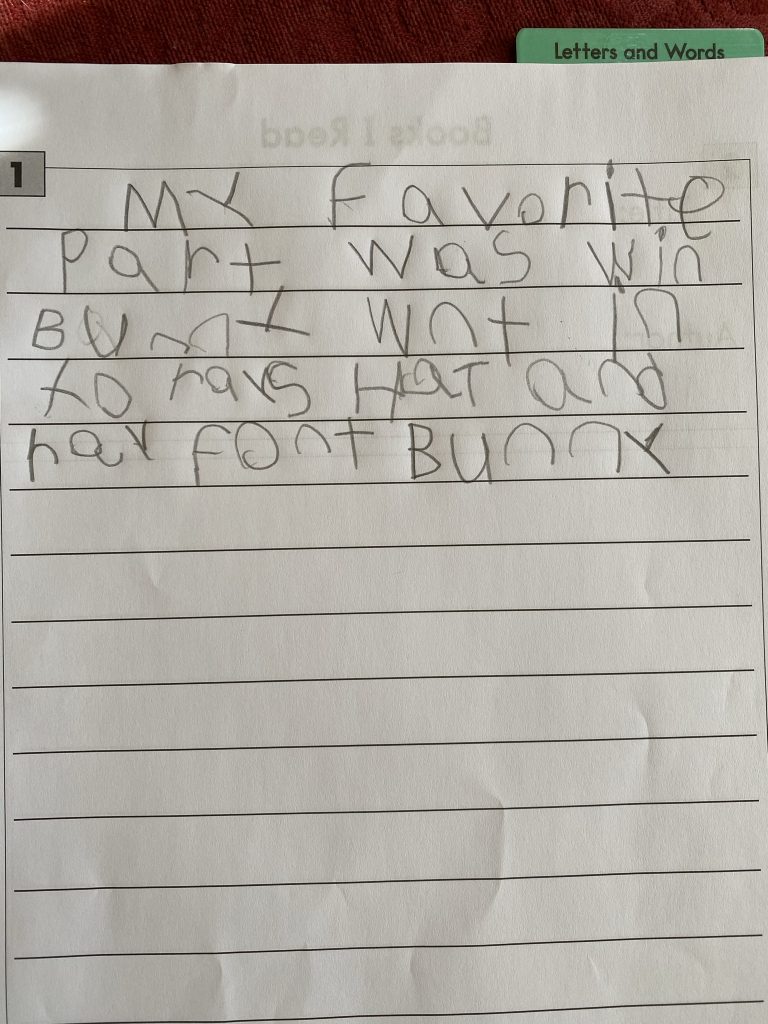 Letters and Words
Books I Read
1
MY Favorite
Part was win
BUnnY wnt in
to rays HaT and
ray font BUnnY